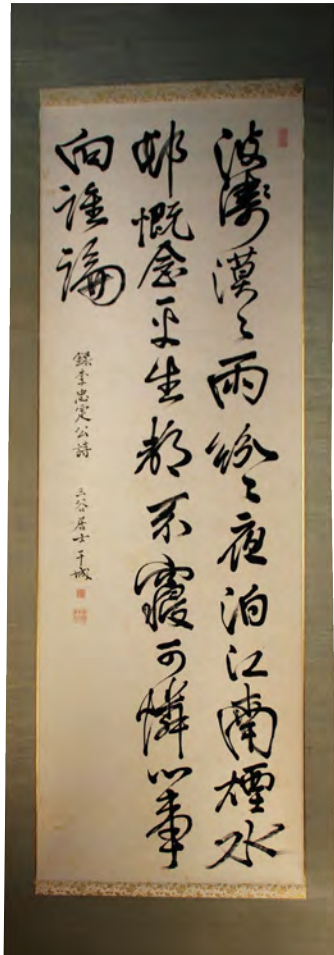 波濤漠々雨紛々夜泊江南煙水
邨慨念平生都不寢可憐心事
向誰論
錄李忠定公詩 谷居士干城